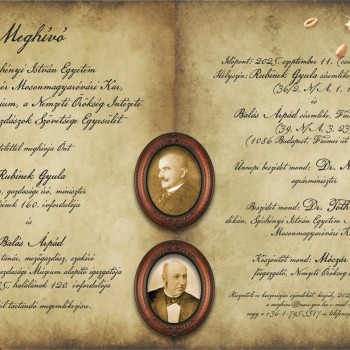 Meghívó
Széchenyi István Egyetem
Mosonmagyaróvári Kar,
a Nemzeti Örökség Intézete
Szövetsége Egyesület
tisztelettel meghívja Önt
Rubinek Gyula
gazdasági író, miniszter
160. évfordulója
és
Balás Árpád
tanár, mezőgazdász, szakíró
gazdasági Múzeum alapító igazgatója
halálának 120. évfordulója
tartandó megemlékezésre.
Időpont: 2025. szeptember 11. (csü
Helyszín: Rubinek Gyula síremléke
(36/2. N.A. 1. 1
és
Balás Árpád síremléke, Fiumei
(39. N.A. 3. 23
(1086 Budapest, Fiumei út
Ünnepi beszédet mond: Dr. N
agrárminiszter
Beszédet mond: Dr. Tóth
dékán, Széchenyi István Egyetem
Mosonmagyaróvári Ka
Köszöntőt mond: Móczár
főigazgató, Nemzeti Örökség
Részvételi és koszorúzási szándékát, kérjük, 202